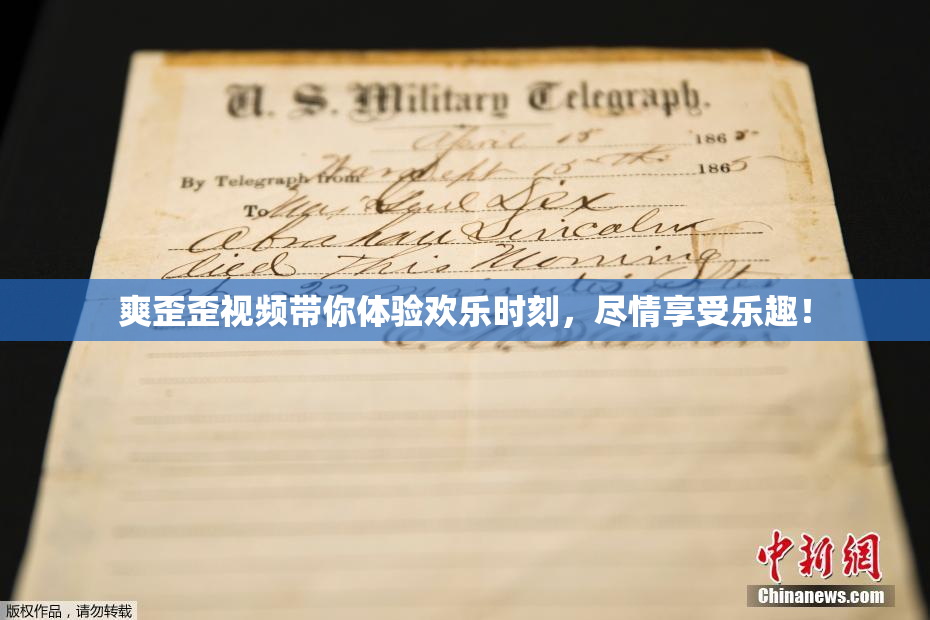 U. S. Military Telegraph.
April 15 1865
By Telegraph from War Dept 15th 1865
To Maj Genl Dix
Abraham Lincoln
died This Morning
at 22 minutes after
爽歪歪视频带你体验欢乐时刻，尽情享受乐趣！
E. M. Stanton
中新網
Chinanews.com
版权作品，请勿转载